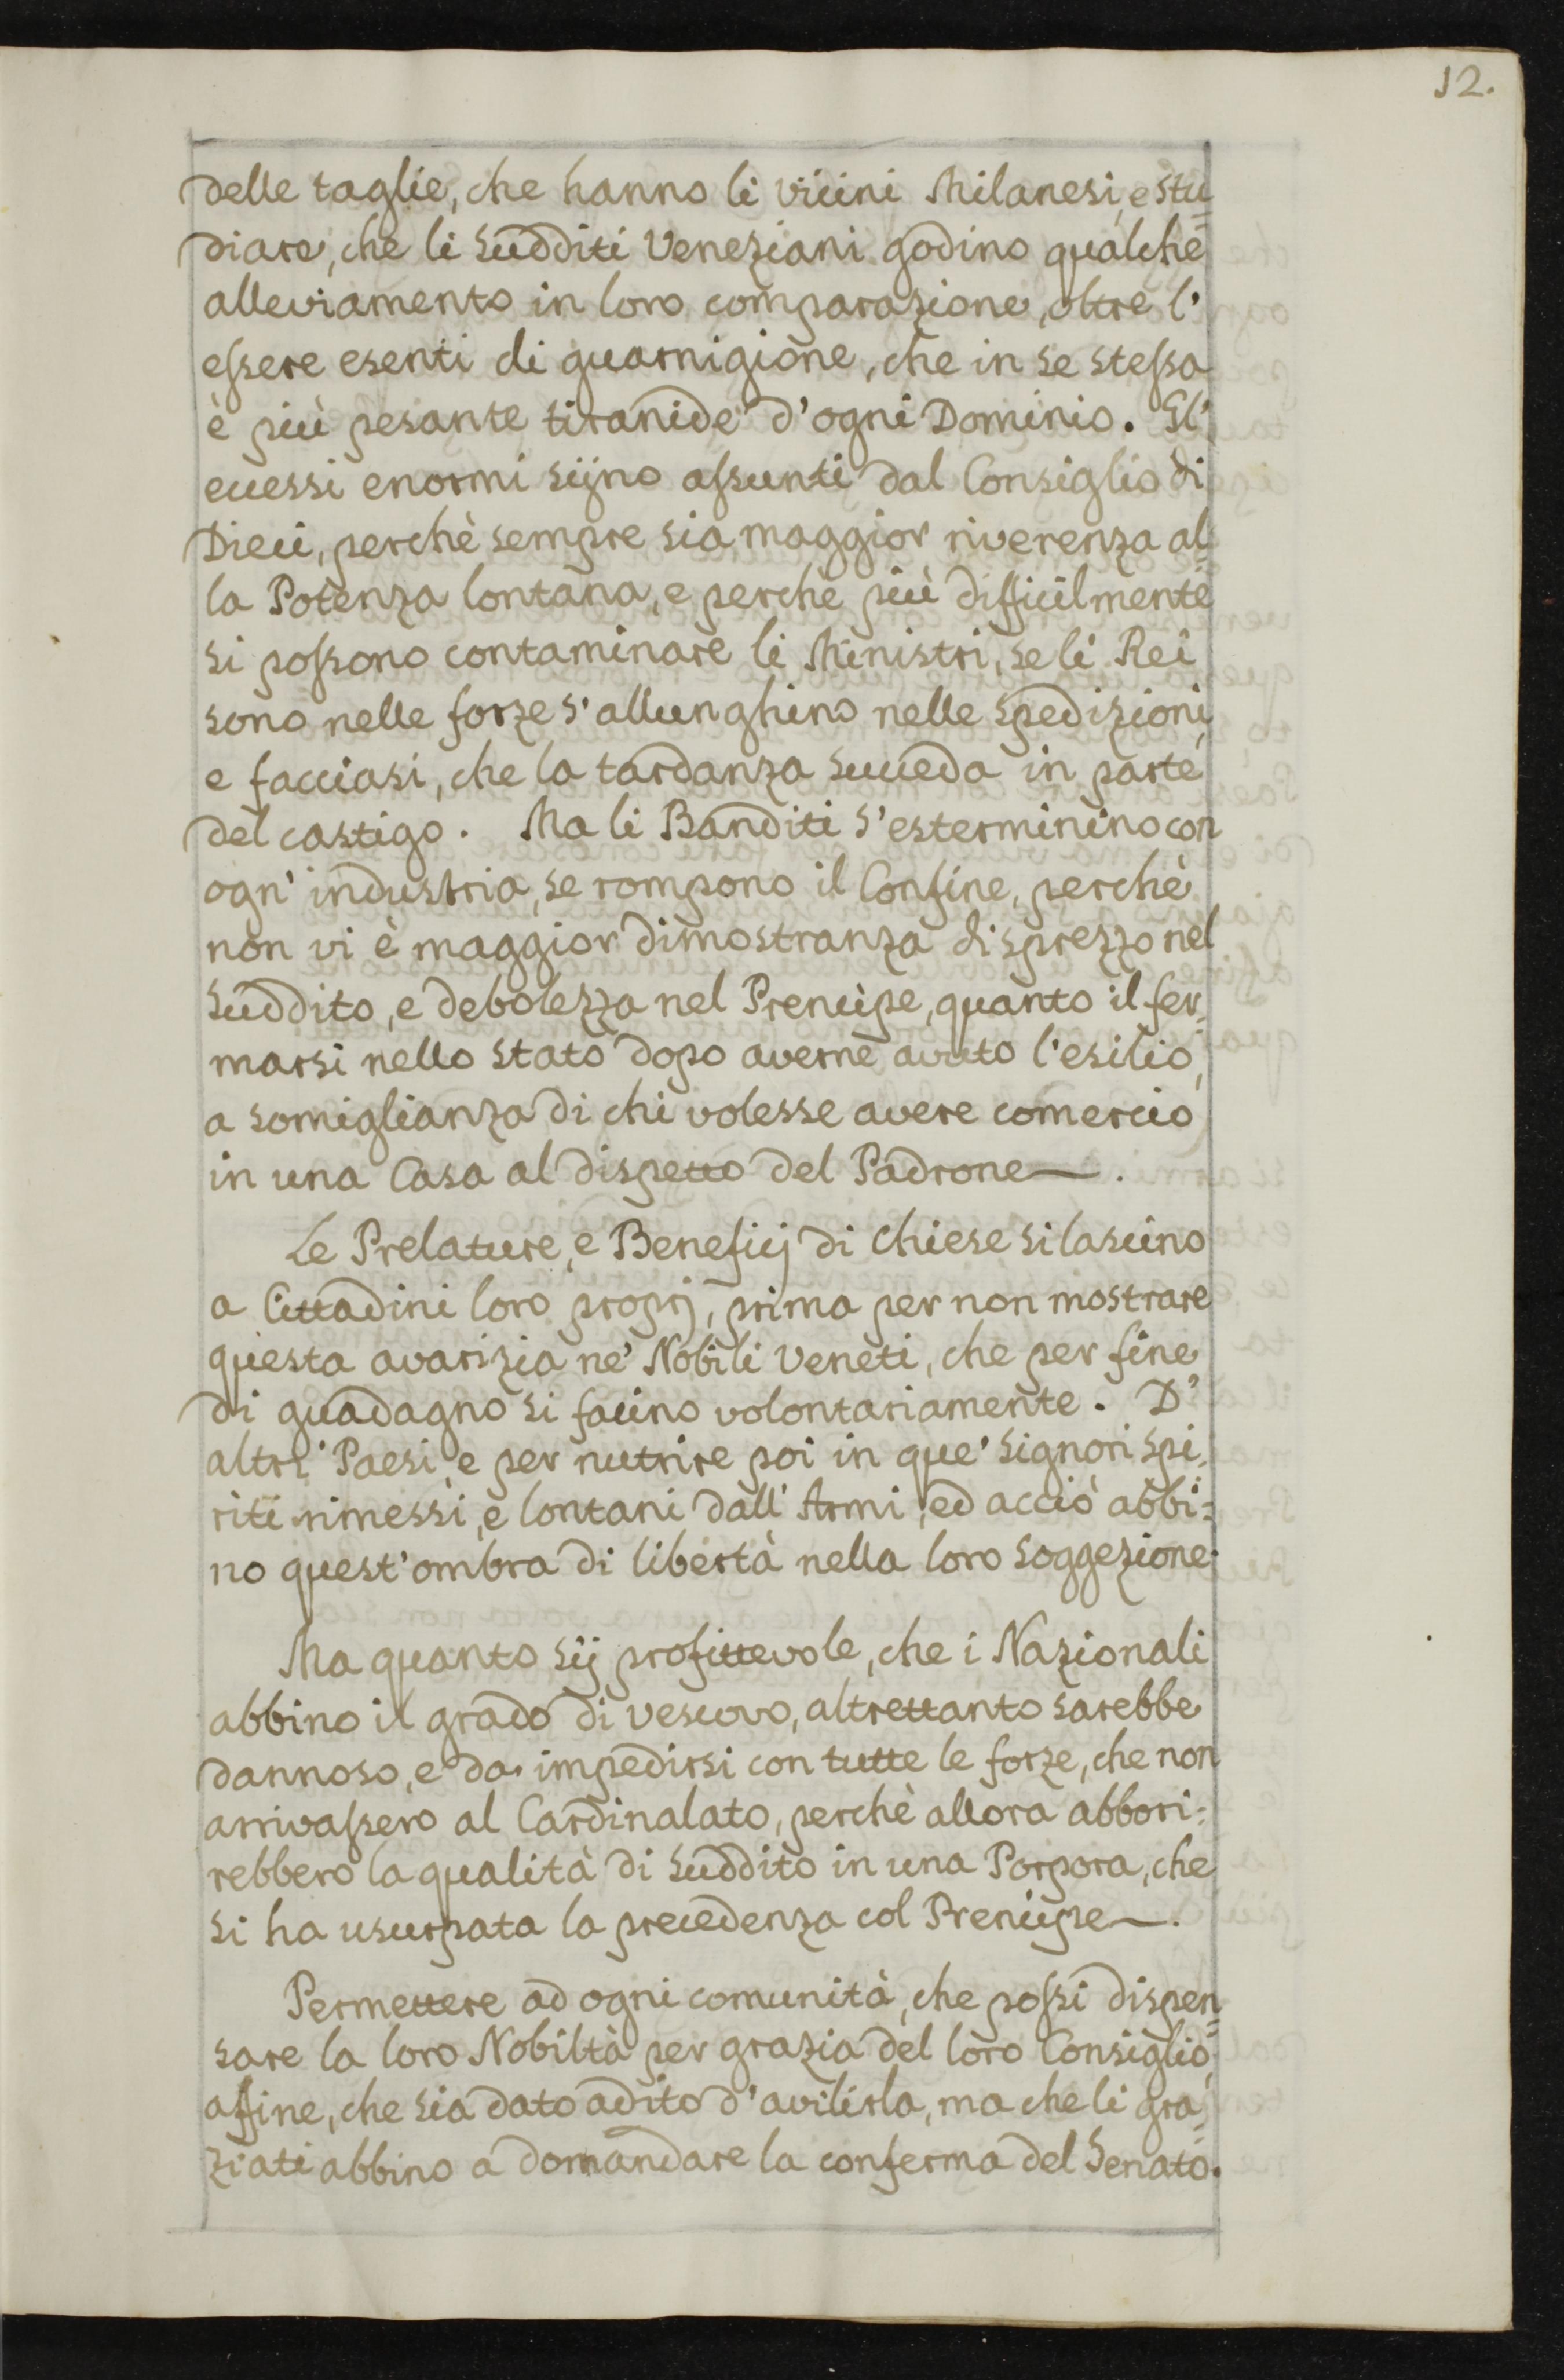 12.
delle taglie, che hanno li vicini Milanesi, e stu=
diare, che li Sudditi Veneziani godino qualche
alleviamento in loro comparazione, oltre l'
essere esenti di guarnigione, che in se stessa
è più pesante tiranide d'ogni Dominio. Gl'
eccessi enormi sijno assunti dal Consiglio di
Dieci, perchè sempre sia maggior riverenza al=
la Potenza lontana, e perchè più difficilmente
si possono contaminare li Ministri, se li Rei
sono nelle forze s'allunghino nelle spedizioni,
e facciasi, che la tardanza succeda in parte
del castigo. Ma li Banditi s'esterminino con
ogn' industria, se rompono il Confine, perchè
non vi è maggior dimostranza di sprezzo nel
Suddito, e debolezza nel Prencipe, quanto il fer=
marsi nello stato dopo averne avuto l'esilio,
a somiglianza di chi volesse avere comercio
in una Casa al dispetto del Padrone.
Le Prelature, e Beneficj di Chiese si lascino
a Cittadini loro proprj, prima per non mostrare
questa avarizia ne' Nobili Veneti, che per fine
di guadagno si faccino volontariamente. D'
altri Paesi, e per nutrire poi in que' Signori spi=
riti rimessi, e lontani dall' Armi, ed acciò abbi=
no quest'ombra di libertà nella loro soggezione.
Ma quanto sij profittevole, che i Nazionali
abbino il grado di vescovo, altrettanto sarebbe
dannoso, e da impedirsi con tutte le forze, che non
arrivassero al Cardinalato, perchè allora abbori=
rebbero la qualità di Suddito in una Porpora, che
si ha usurpata la precedenza col Prencipe.
Permettere ad ogni comunità, che possi dispen=
sare la loro Nobiltà per grazia del loro Consiglio,
affine, che sia dato adito d'avilirla, ma che li gra=
ziati abbino a domandare la conferma del Senato.